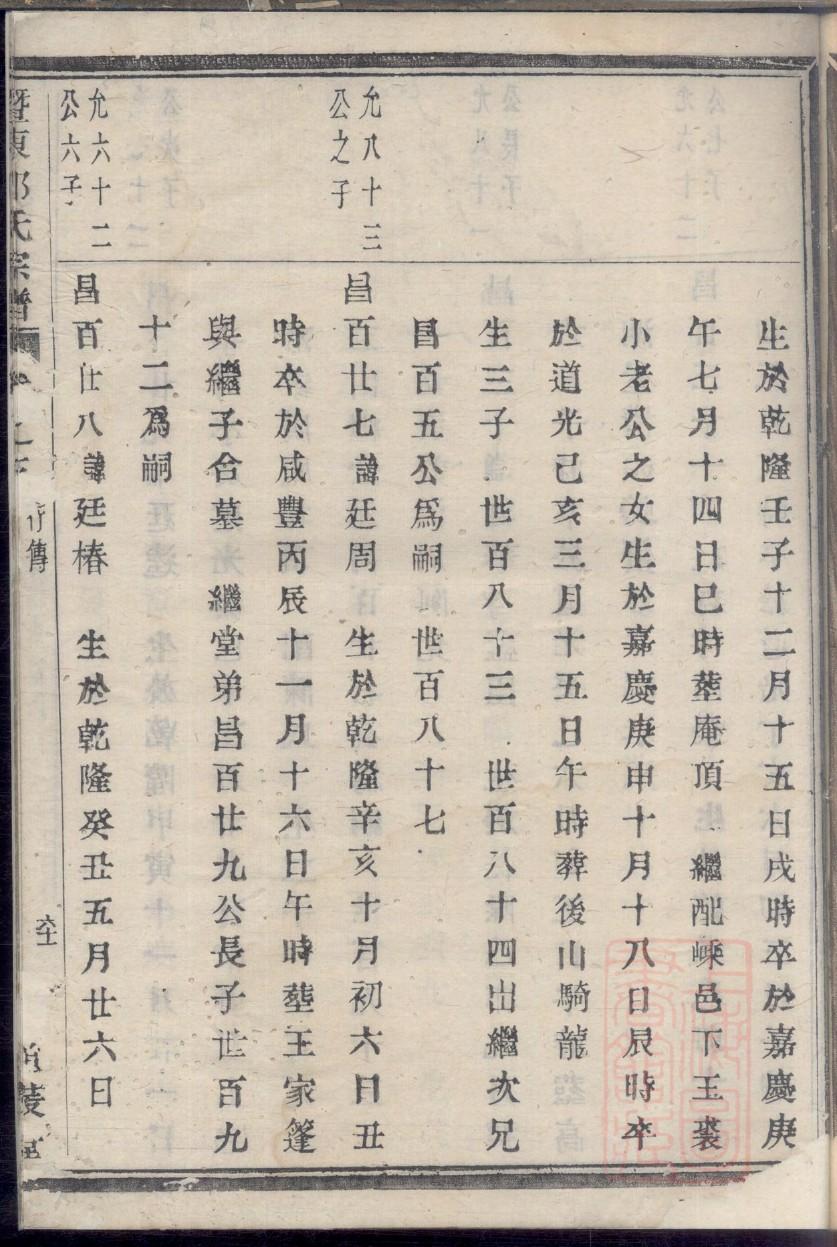 生於乾隆壬子十二月十五日戌時卒於嘉慶庚
午七月十四日巳時塟庵頂 繼配嵊邑下王裘
小老公之女生於嘉慶庚申十月十八日辰時卒
於道光己亥三月十五日午時葬後山騎龍
生三子 世百八十三 世百八十四出繼次兄
昌百五公爲嗣 世百八十七
允八十三
公之子
昌百廿七諱廷周 生於乾隆辛亥十月初六日丑
時卒於咸豐丙辰十一月十六日午時塟王家篷
與繼子合墓 繼堂弟昌百廿九公長子世百九
十二爲嗣
允六十二
公六子
昌百廿八諱廷椿 生於乾隆癸丑五月廿六日
暨東 氏宗譜
行傳